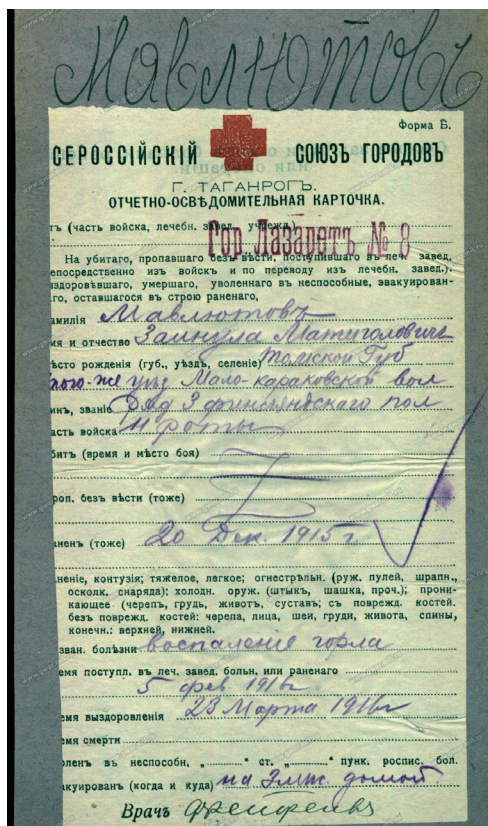 Мавлютовъ
Форма Б.
СЕРОССІЙСКІЙ СОЮЗЪ ГОРОДОВЪ
Г. ТАГАНРОГЪ.
ОТЧЕТНО-ОСВѢДОМИТЕЛЬНАЯ КАРТОЧКА.
тъ (часть войска, лечебн. завед., учрежд.)
Гор. Лазаретъ № 8
На убитаго, пропавшаго безъ вѣсти, поступившаго въ леч. завед.
епосредственно изъ войскъ и по переводу изъ лечебн. завед.),
ыздоровѣвшаго, умершаго, уволеннаго въ неспособные, эвакуирован-
аго, оставшагося въ строю раненаго,
амилія Мавлютовъ
мя и отчество
ѣсто рожденія (губ., уѣздъ, селеніе) Томской Губ
того-же уѣз вол
инъ, званіе Ряд 3 финляндскаго пол
асть войска роты
битъ (время и мѣсто боя)
роп. безъ вѣсти (тоже)
аненъ (тоже) 20 Дек. 1915 г
аненіе, контузія; тяжелое, легкое; огнестрѣльн. (руж. пулей, шрапн.,
осколк. снаряда); холодн. оруж. (штыкъ, шашка, проч.); прони-
кающее (черепъ, грудь, животъ, суставъ; съ поврежд. костей.
безъ поврежд. костей: черепа, лица, шеи, груди, живота, спины,
конечн.: верхней, нижней.
азван. болѣзни воспаленіе горла
ремя поступл. въ леч. завед. больн. или раненаго
5 фев 1916 г
ремя выздоровленія 23 Марта 1916 г
ремя смерти
воленъ въ неспособн. „ “ ст. „ “ пунк. роспис. бол.
вакуированъ (когда и куда) на домой
Врачъ